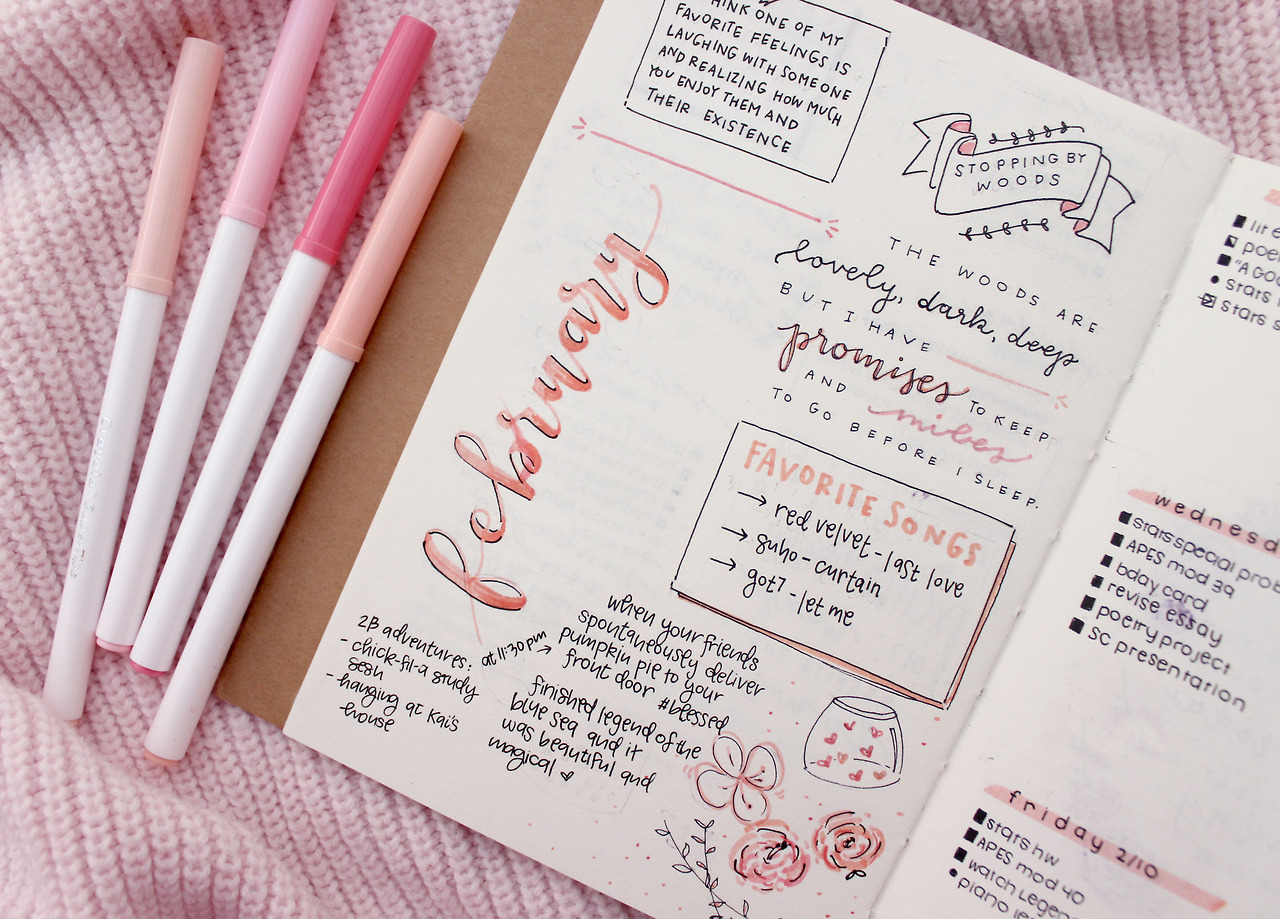 THINK ONE OF MY
FAVORITE FEELINGS IS
LAUGHING WITH SOMEONE
AND REALIZING HOW MUCH
YOU ENJOY THEM AND
THEIR EXISTENCE
february
2B adventures:
- chick-fil-a study
sesh
- hanging at Kai's
house
at 11:30 pm →
when your friends
spontaneously deliver
pumpkin pie to your
front door #blessed
finished legend of the
blue sea and it
was beautiful and
magical ♡
STOPPING BY
WOODS
THE WOODS ARE
lovely, dark, deep
BUT I HAVE
promises TO KEEP
AND miles
TO GO BEFORE I SLEEP.
FAVORITE SONGS
→ red velvet - last love
→ suho - curtain
→ got7 - let me
stars
stars
wednesd
stars special prob
APES mod 39
bday card
revise essay
poetry project
SC presentation
friday 2/10
stars hw
APES mod 40
watch legen
piano